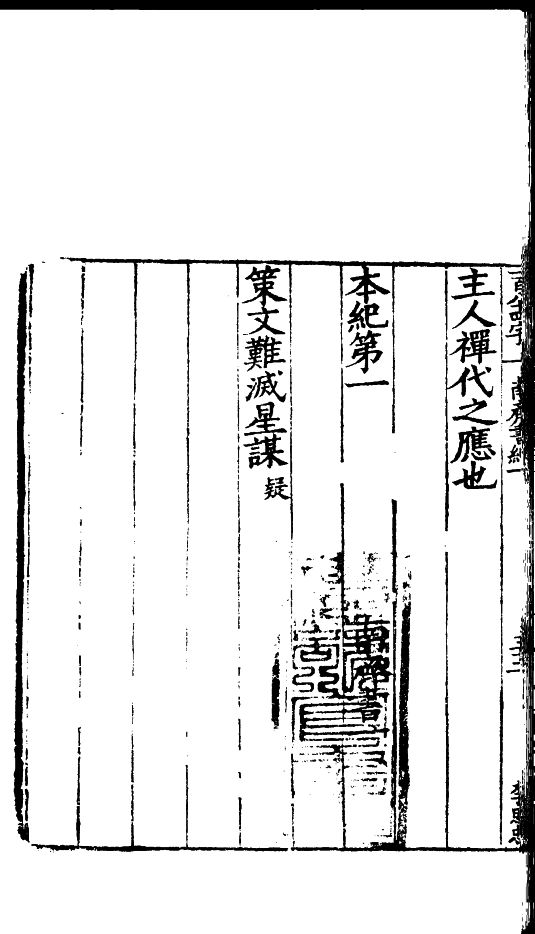 主人禪代之應也
本紀第一 南齊書
策文難滅星謀疑